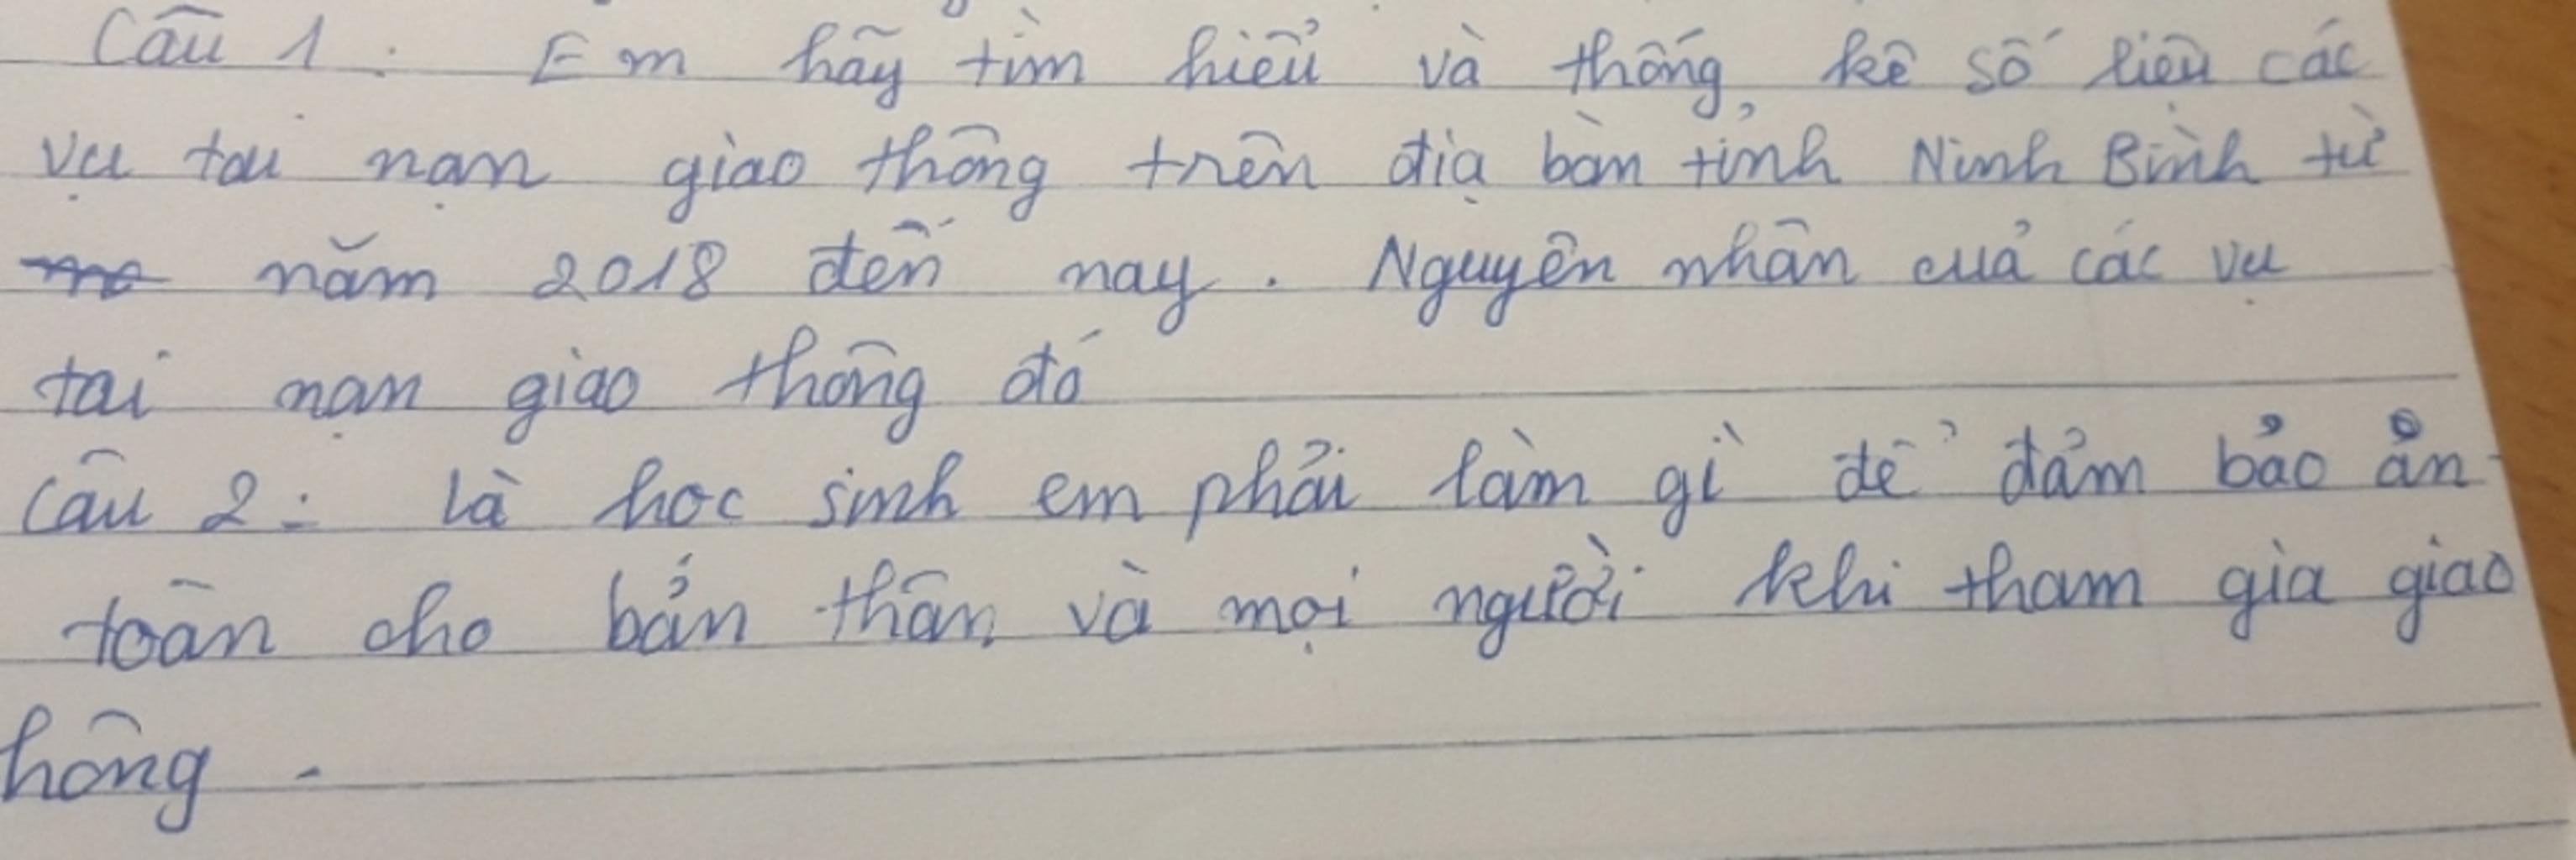 Câu 1 : Em hãy tìm hiểu và thống kê số liệu các
vụ tai nạn giao thông trên địa bàn tỉnh Ninh Bình từ
năm 2018 đến nay. Nguyên nhân của các vụ
tai nạn giao thông đó
Câu 2 : Là học sinh em phải làm gì để đảm bảo an
toàn cho bản thân và mọi người khi tham gia giao
hông.